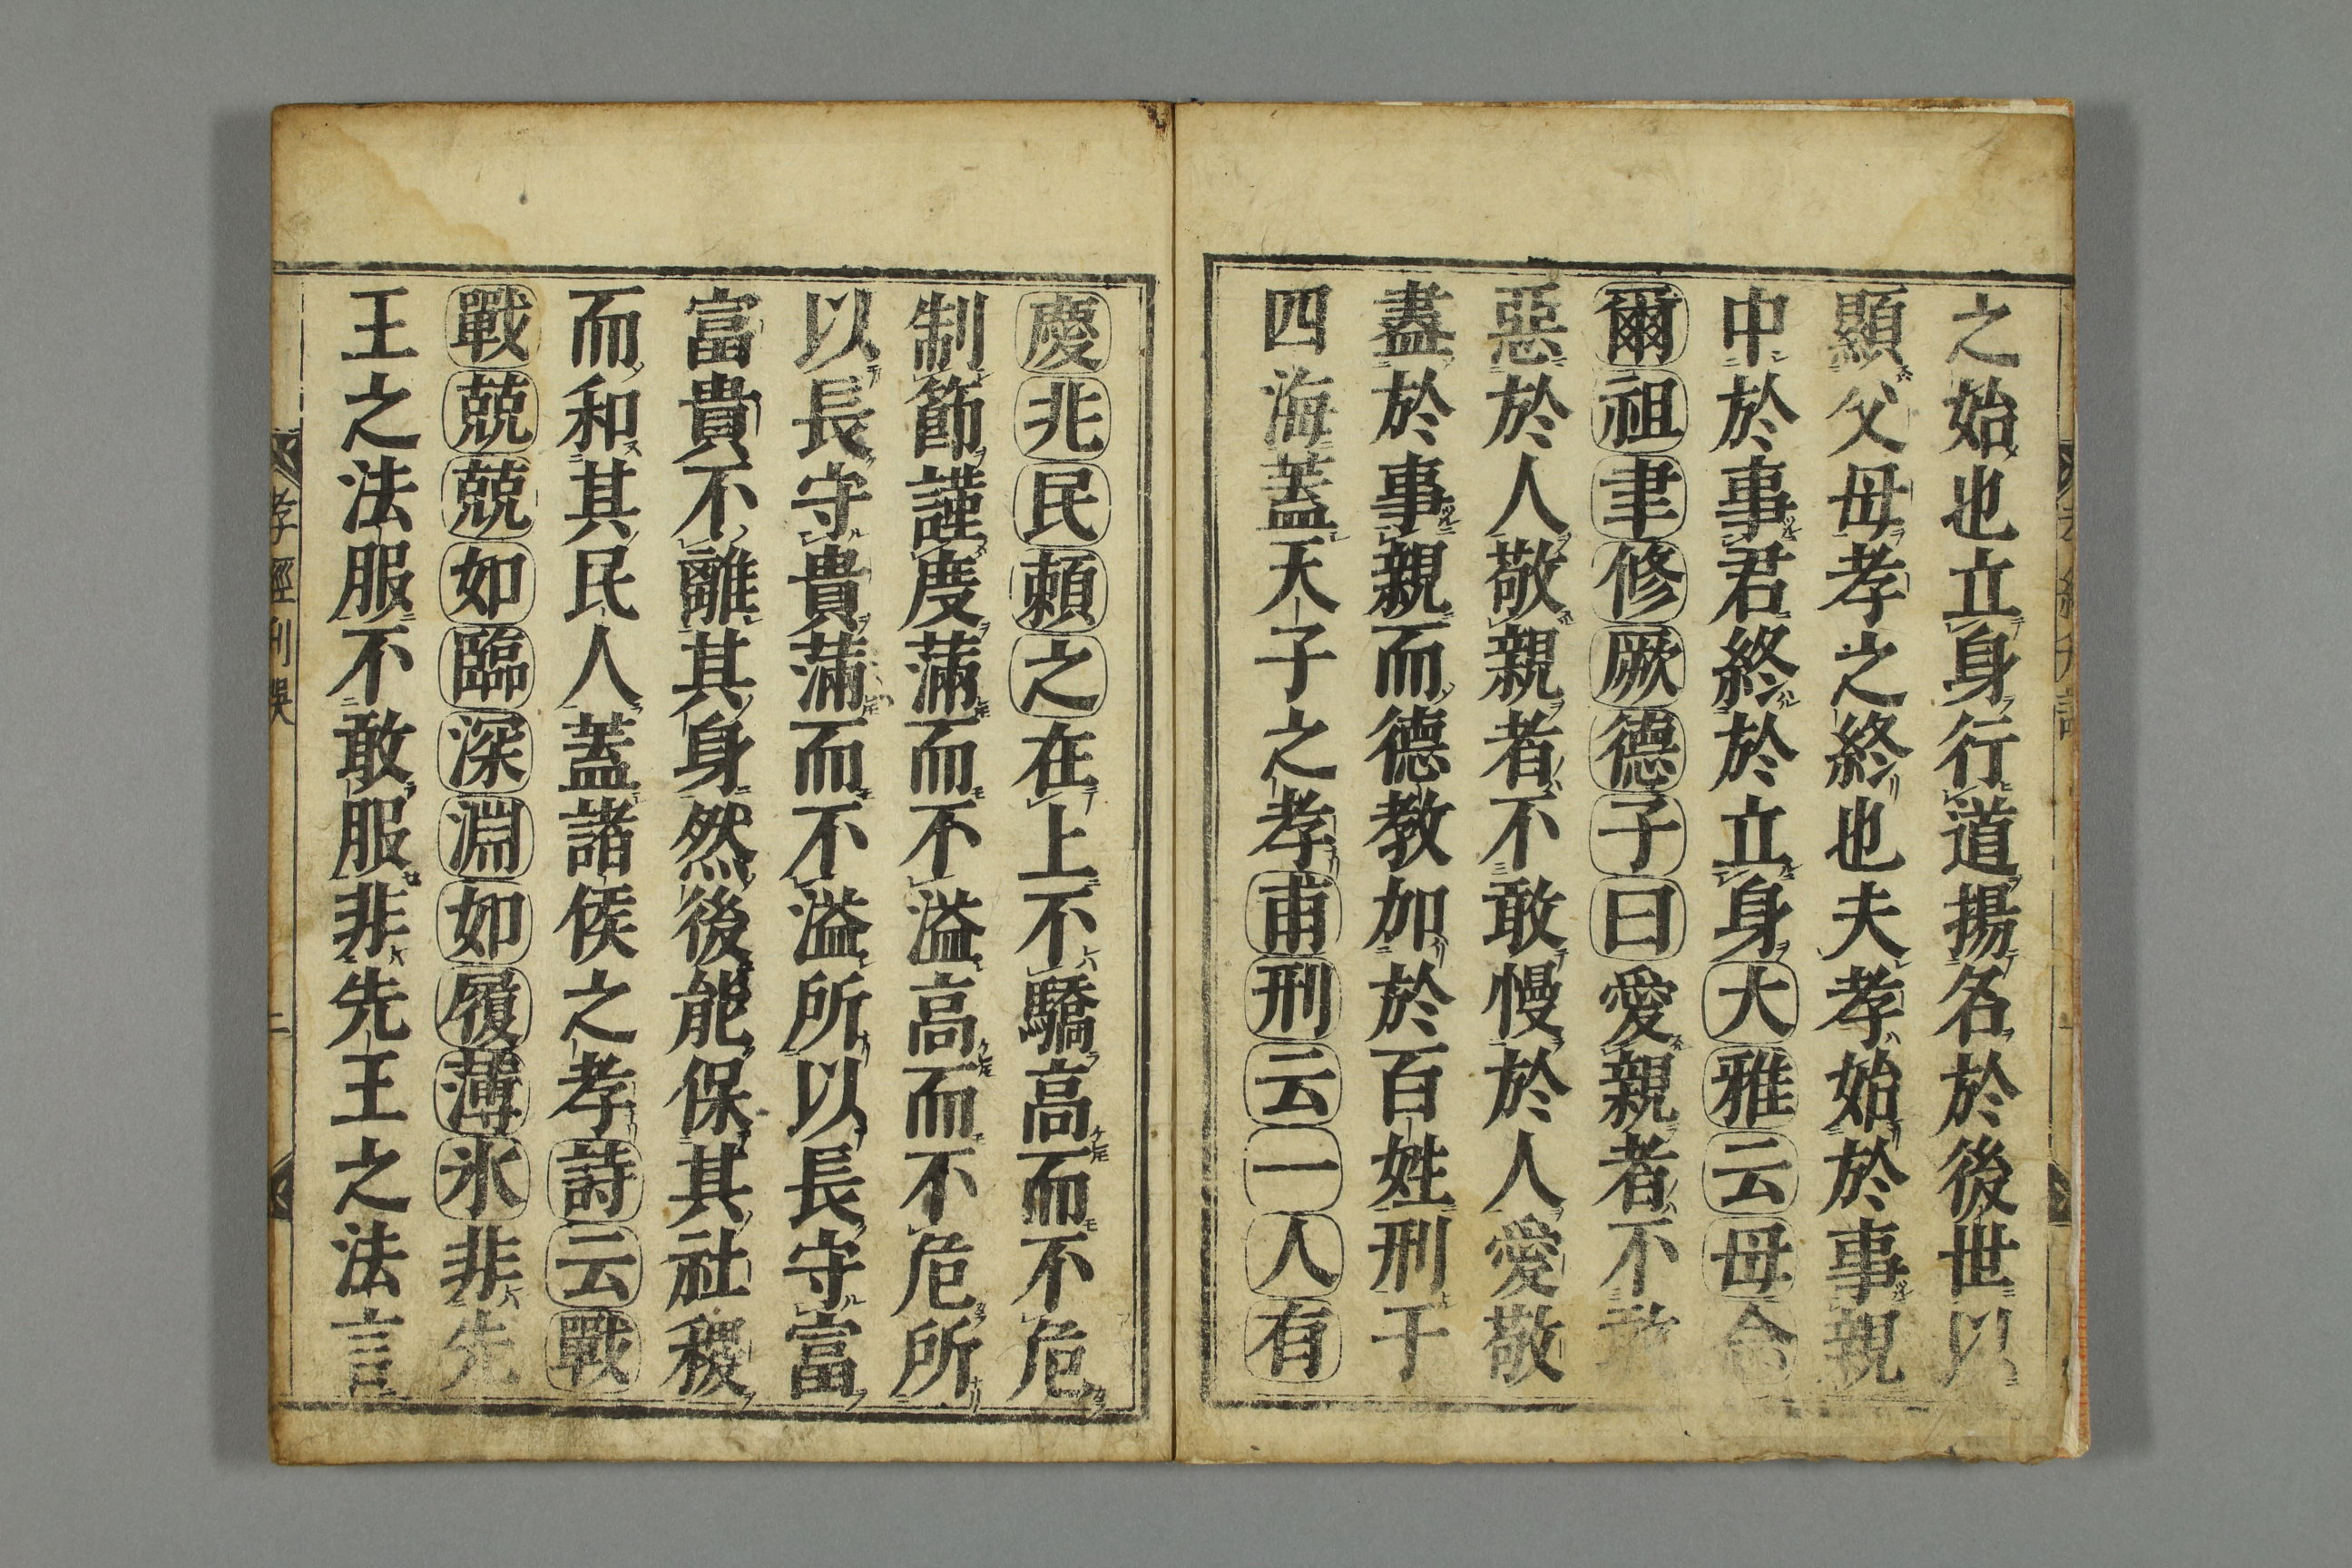 之始也立身行道揚名於後世以
顯父母孝之終也夫孝始於事親
中於事君終於立身大雅云毋念
爾祖聿修厥德子曰愛親者不敢
惡於人敬親者不敢慢於人愛敬
盡於事親而德教加於百姓刑于
四海蓋天子之孝甫刑云一人有
慶兆民頼之在上不驕高而不危
制節謹度滿而不溢高而不危所
以長守貴滿而不溢所以長守富
富貴不離其身然後能保其社稷
而和其民人蓋諸侯之孝詩云戰
戰兢兢如臨深淵如履薄氷非先
王之法服不敢服非先王之法言
孝經刊誤
二